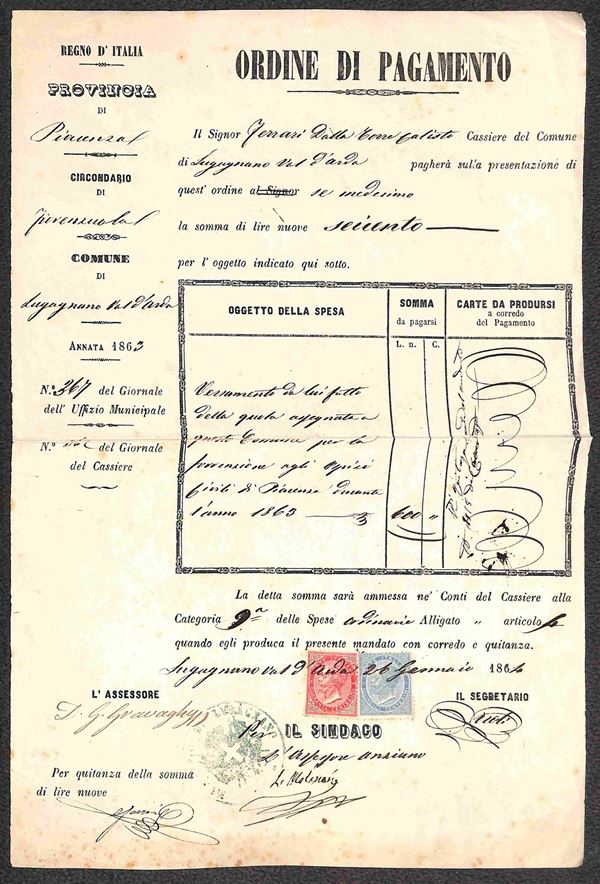 REGNO D' ITALIA
PROVINCIA
DI
Piacenza
CIRCONDARIO
DI
Fiorenzuola
COMUNE
DI
Lugagnano Val d'Arda
ANNATA 1863
N.º 367 del Giornale
dell' Uffizio Municipale
N.º del Giornale
del Cassiere
ORDINE DI PAGAMENTO
Il Signor Ferrari Dalla Torre Calisto Cassiere del Comune
di Lugagnano Val d'Arda pagherà sulla presentazione di
quest' ordine al Signor se medesimo
la somma di lire nuove seicento
per l' oggetto indicato qui sotto.
OGGETTO DELLA SPESA
SOMMA
da pagarsi
L. n. C.
CARTE DA PRODURSI
a corredo
del Pagamento
Versamento da lui fatto
della quota assegnata a
questo Comune per la
agli Ospizi
Civili di Piacenza durante
l'anno 1863
600 "
La detta somma sarà ammessa ne' Conti del Cassiere alla
Categoria 9ª delle Spese ordinarie Alligato " articolo
quando egli produca il presente mandato con corredo e quitanza.
Lugagnano Val d'Arda 26 Gennaio 1864
L' ASSESSORE
IL SEGRETARIO
Per IL SINDACO
L'Assessore anziano
Per quitanza della somma
di lire nuove